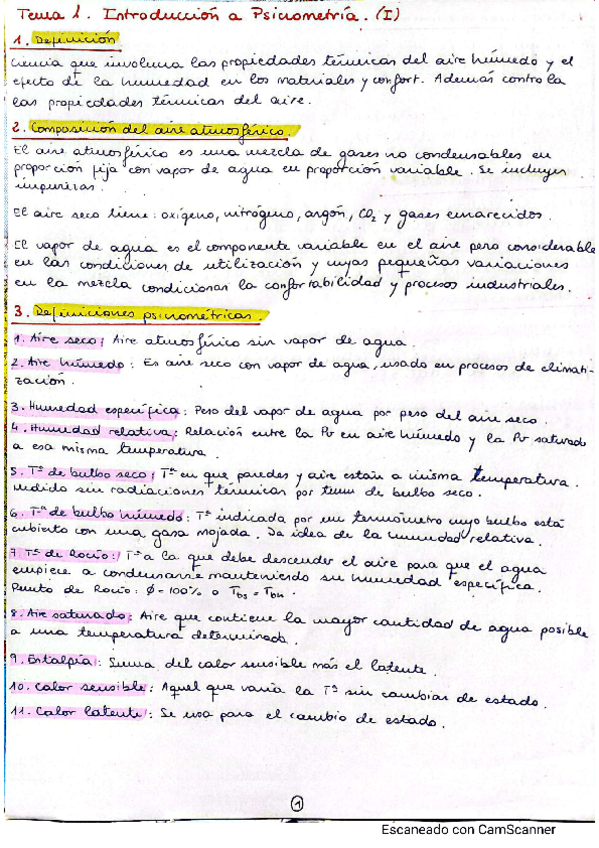 Tema 1. Introducción a Psicrometría. (I)
1. Definición
Ciencia que involucra las propiedades térmicas del aire húmedo y el
efecto de la humedad en los materiales y confort. Además controla
las propiedades térmicas del aire.
2. Composición del aire atmosférico.
El aire atmosférico es una mezcla de gases no condensables en
proporción fija con vapor de agua en proporción variable. Se incluyen
impurezas.
El aire seco tiene: oxígeno, nitrógeno, argón, CO₂ y gases enrarecidos.
El vapor de agua es el componente variable en el aire pero considerable
en las condiciones de utilización y cuyas pequeñas variaciones
en la mezcla condicionan la confortabilidad y procesos industriales.
3. Definiciones psicrométricas.
1. Aire seco: Aire atmosférico sin vapor de agua.
2. Aire húmedo: Es aire seco con vapor de agua, usado en procesos de climati-
zación.
3. Humedad específica: Peso del vapor de agua por peso del aire seco.
4. Humedad relativa: Relación entre la Pv en aire húmedo y la Pv saturado
a esa misma temperatura.
5. Tª de bulbo seco: Tª en que paredes y aire están a misma temperatura.
Medido sin radiaciones térmicas por term de bulbo seco.
6. Tª de bulbo húmedo: Tª indicada por un termómetro cuyo bulbo está
cubierto con una gasa mojada. Da idea de la humedad relativa.
7. Tª de Rocío: Tª a la que debe descender el aire para que el agua
empiece a condensarse manteniendo su humedad específica.
Punto de Rocío: ϕ = 100% o Tbs = Tbh.
8. Aire saturado: Aire que contiene la mayor cantidad de agua posible
a una temperatura determinada.
9. Entalpía: Suma del calor sensible más el latente.
10. Calor sensible: Aquel que varía la Tª sin cambiar de estado.
11. Calor latente: Se usa para el cambio de estado.
1
Escaneado con CamScanner